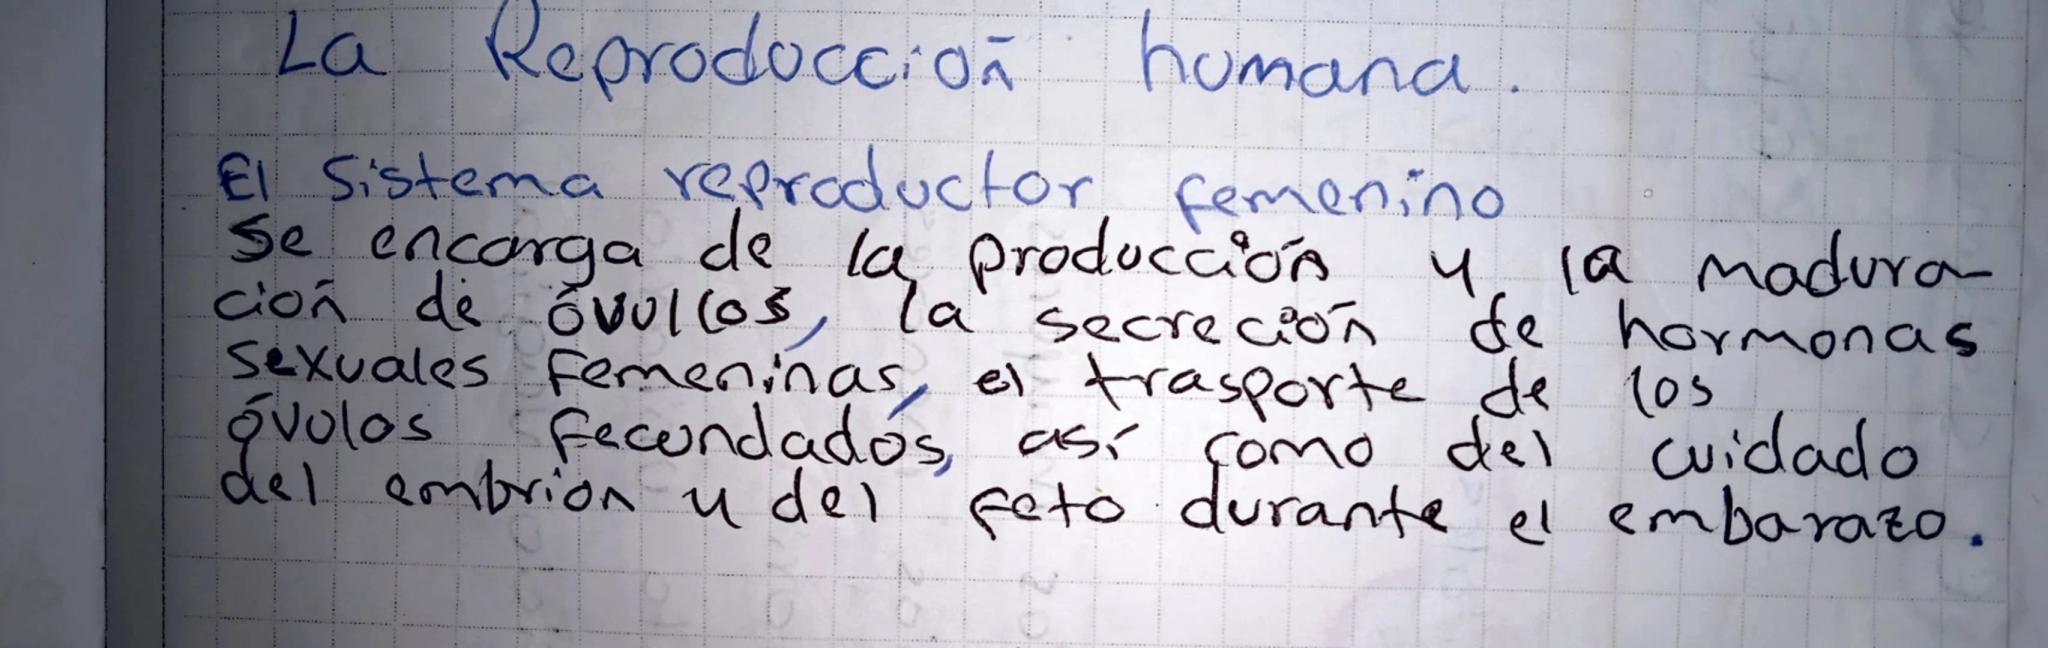 La Reproducción humana.
El sistema reproductor femenino
Se encarga de la producción y la madura-
ción de óvullos, la secreción de hormonas
sexuales femeninas, el trasporte de los
óvulos fecundados, así como del cuidado
del embrion y del feto durante el embarazo.